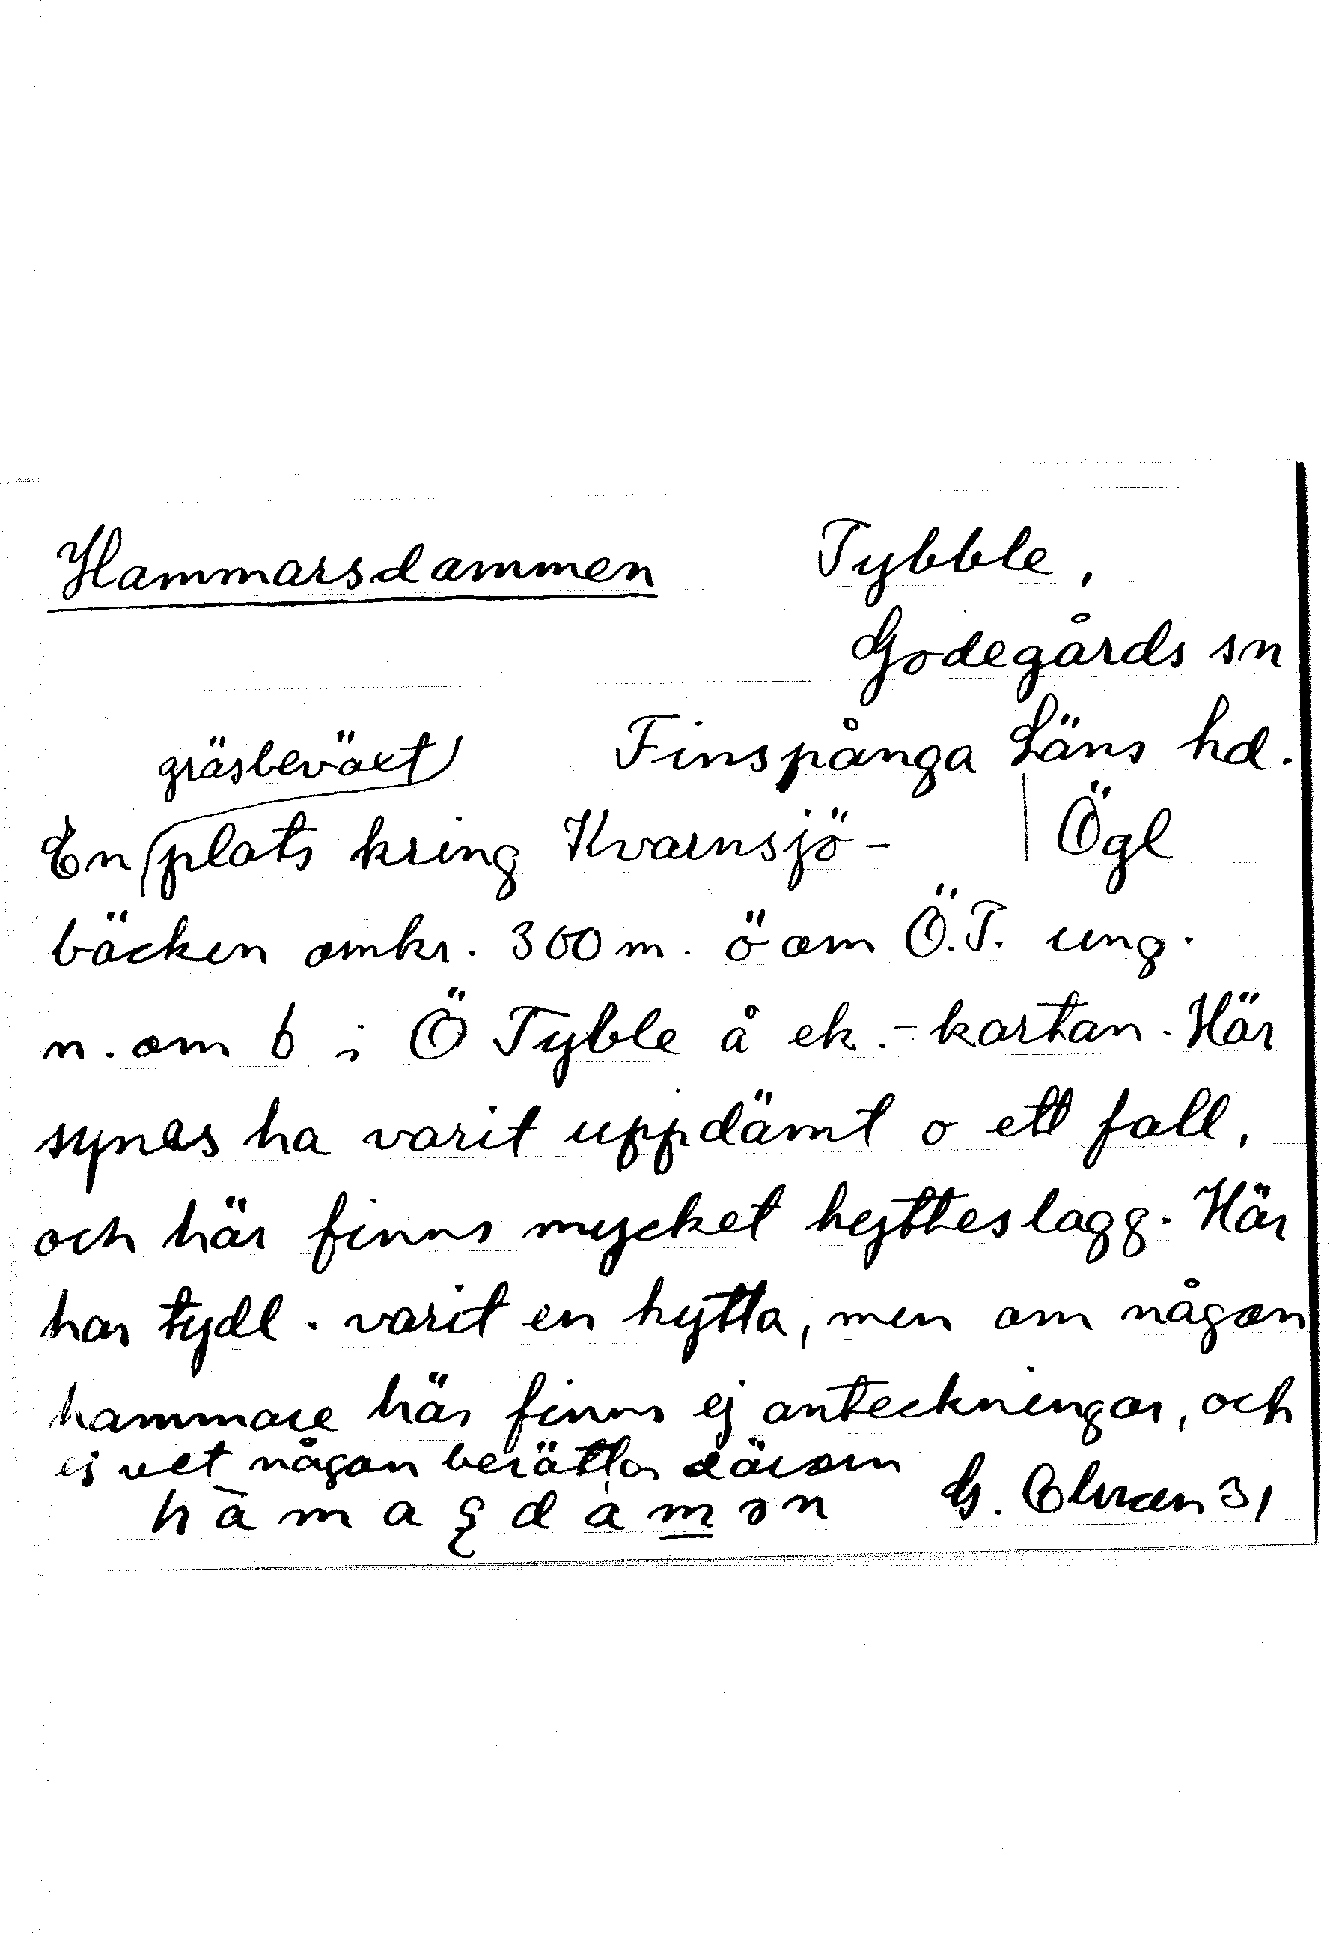 Hammarsdammen
Tybble,
Godegårds sn
Finspånga Läns hd.
Ögl
gräsbeväxt
En plats kring Kvarnsjö-
bäcken omkr. 300 m. ö om Ö.T. ung.
n. om b i Ö Tyble å ek.-kartan. Här
synes ha varit uppdämt o ett fall,
och här finns mycket hytteslagg. Här
har tydl. varit en hytta, men om någon
hammare här finns ej anteckningar, och
ej vet någon berätta därom
G. 31